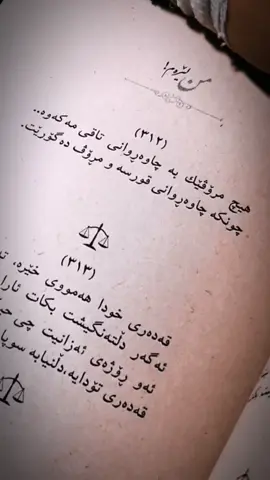 من لێرەوم!
(٣١٢)
هیچ مرۆڤێك بە چاوەڕوانی تاقی مەکەوە..
چونکە چاوەڕوانی قورسە و مرۆڤ دەگۆڕێت.
(٣١٣)
قەدەری خودا هەمووی خێرە،
ئەگەر دڵتەنگیشت بکات
ئەو ڕۆژەی ئەزانیت چی
قەدەری تۆدایە، دڵنیابە